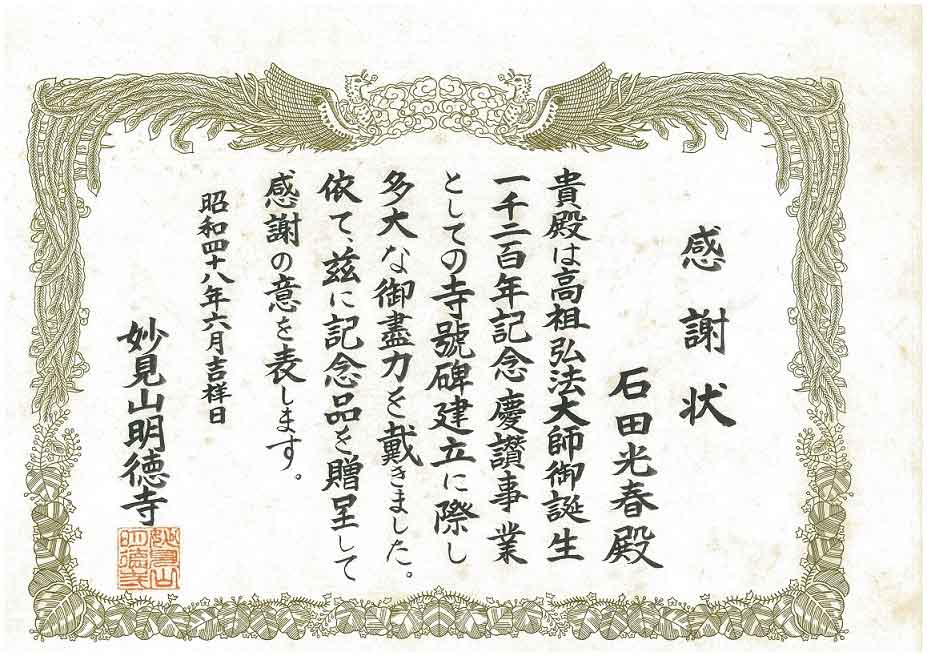 感謝状
石田光春殿
貴殿は高祖弘法大師御誕生
一千二百年記念慶讃事業
としての寺號碑建立に際し
多大な御盡力を戴きました。
依て、茲に記念品を贈呈して
感謝の意を表します。
昭和四十八年六月吉祥日
妙見山明徳寺